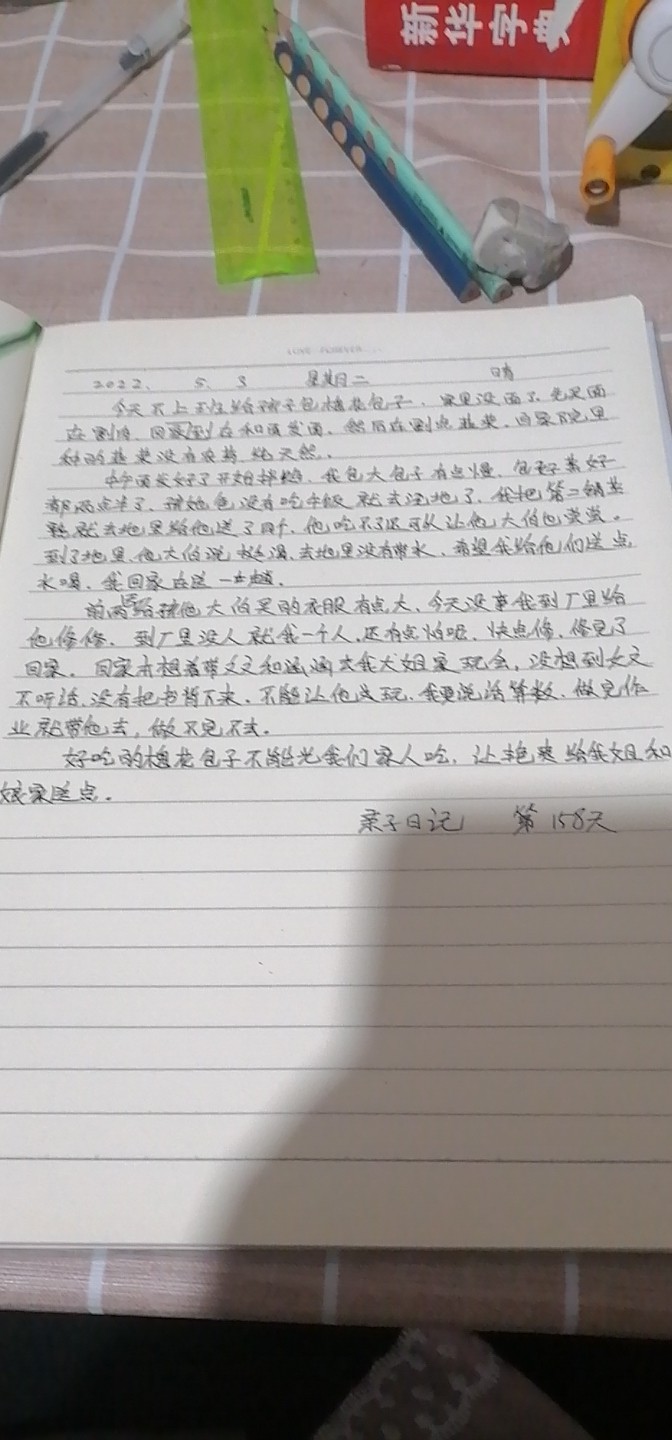 新华字典
LOVE FOREVER
2022. 5. 3 星期二 晴
今天不上班给孩子包槐花包子，家里没面了，先买面
在割肉，回家在和面发面，然后在割点韭菜，自家院里
种的韭菜没有农药，纯天然。
中午面发好了开始拌馅，我包大包子有点慢，包子蒸好
都两点半了，孩他爸没有吃午饭就去浇地了，我把第二锅蒸
熟就去地里给他送了四个，他吃不了还可以让他大伯也尝尝。
到了地里，他大伯说挺渴，去地里没有带水，希望我给他们送点
水喝，我回家在送一趟。
前两给孩他大伯买的衣服有点大，今天没事我到厂里给
他修修，到厂里没人就我一个人，还有点怕呢，快点修，修完了
回家，回家本想着带文文和涵涵去我大姐家玩会，没想到文文
不听话，没有把书背下来，不能让他去玩，我要说话算数，做完作
业就带他去，做不完不去。
好吃的槐花包子不能光我们家人吃，让艳爽给我大姐和
娘家送点。
亲子日记 第158天